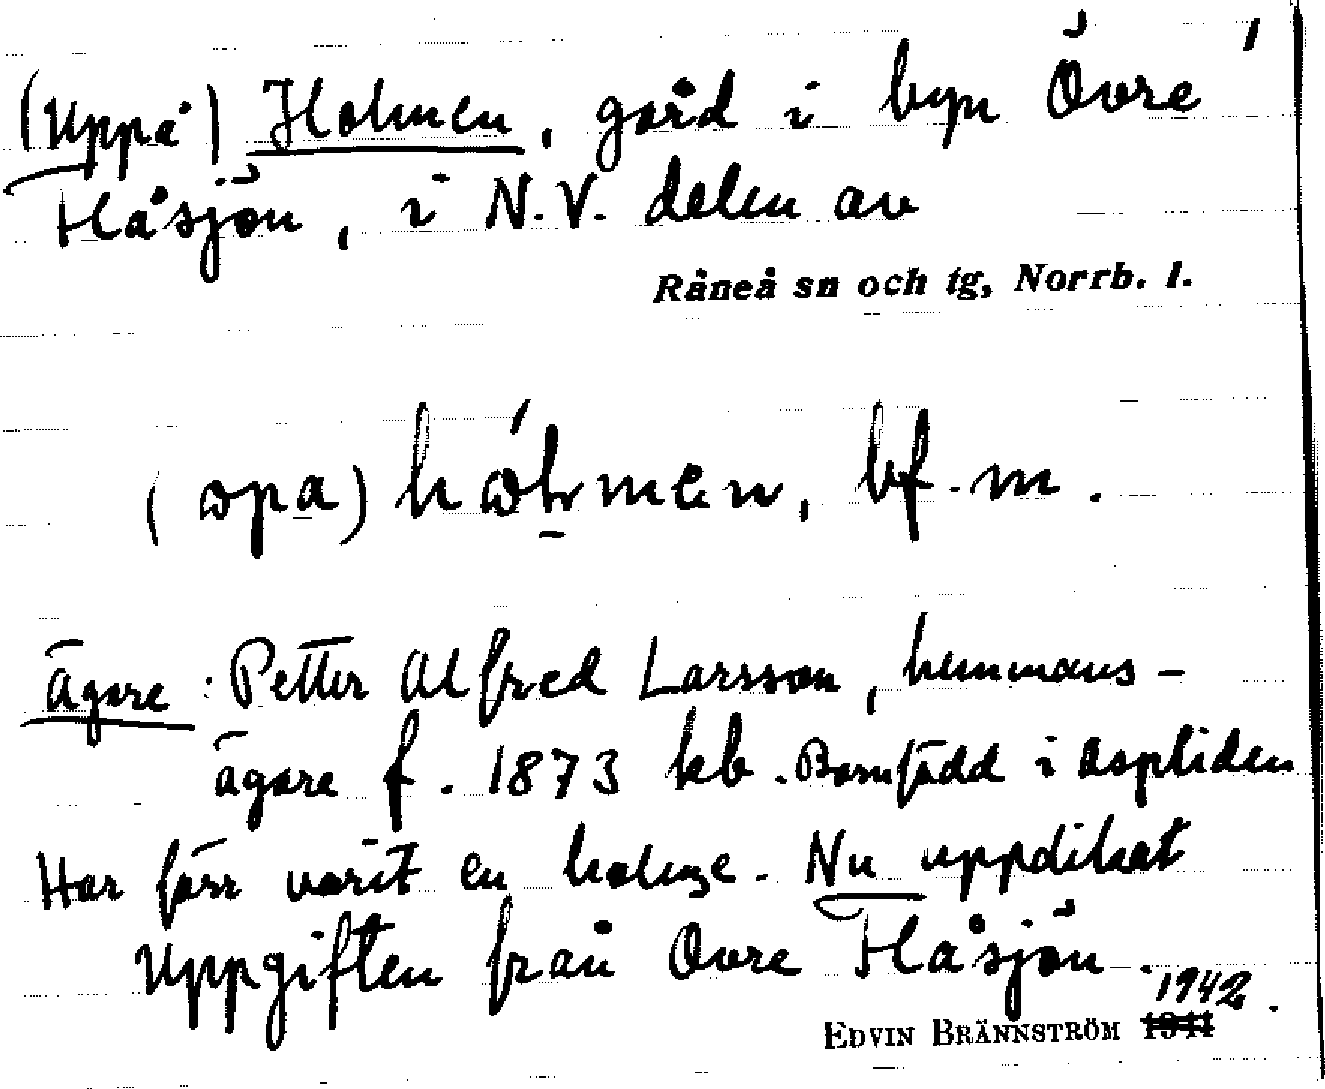 1
(Uppå) Holmen, gård i byn Övre
Håsjön, i N.V. delen av
Råneå sn och tg, Norrb. l.
(ɔpa) hɔ́ḷmen, bf. m.
ägare: Petter Alfred Larsson, hemmans-
ägare f. 1873 kb. Barnfödd i Aspliden
Har förr varit en holme. Nu uppdikat
Uppgiften från Övre Håsjön.
1942.
EDVIN BRÄNNSTRÖM 1941